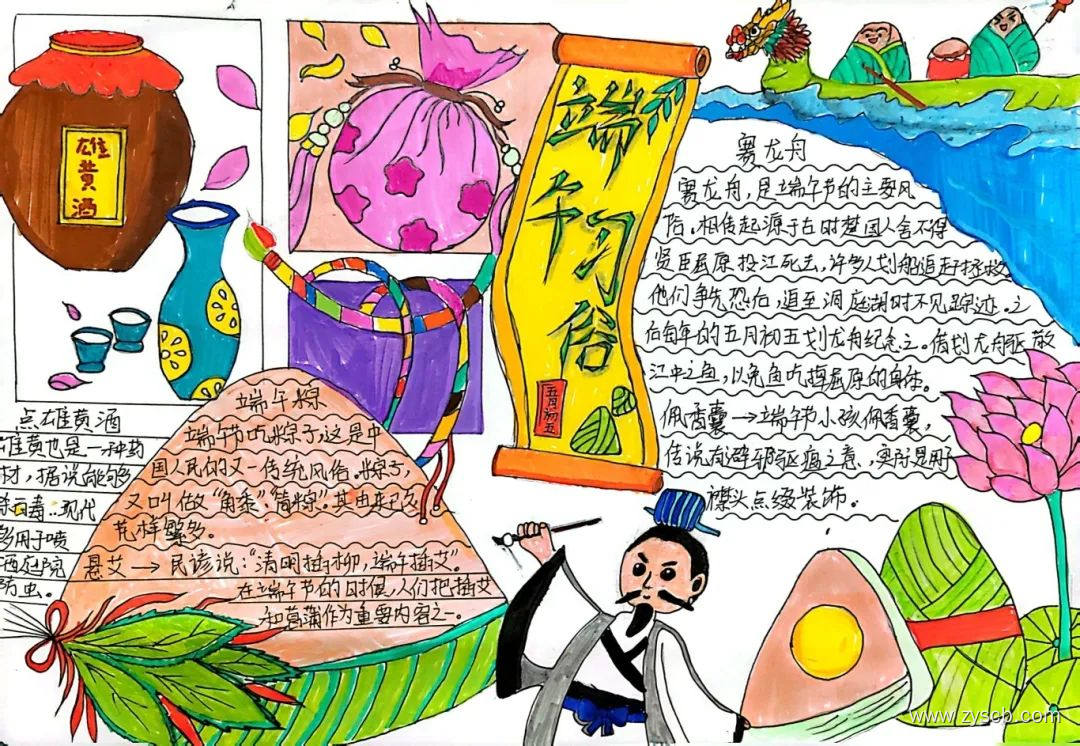 雄黄酒
端午习俗
五月初五
赛龙舟
赛龙舟，是端午节的主要风
俗。相传起源于古时楚国人舍不得
贤臣屈原投江死去，许多人划船追赶拯救
他们争先恐后，追至洞庭湖时不见踪迹。之
后每年的五月初五划龙舟纪念之。借划龙舟驱散
江中之鱼，以免鱼吃掉屈原的身体。
佩香囊→端午节小孩佩香囊，
传说有避邪驱瘟之意，实际是用于
襟头点缀装饰。
端午粽
端午节吃粽子，这是中
国人民的又一传统风俗。粽子，
又叫做“角黍”“筒粽”。其由来已久
花样繁多。
悬艾→民谚说：“清明插柳，端午插艾”。
在端午节的时候，人们把插艾
和菖蒲作为重要内容之一。
点雄黄酒
雄黄也是一种药
材，据说能够
除百毒..现代
多用于喷
洒庭院
防虫。
www.zyscb.com